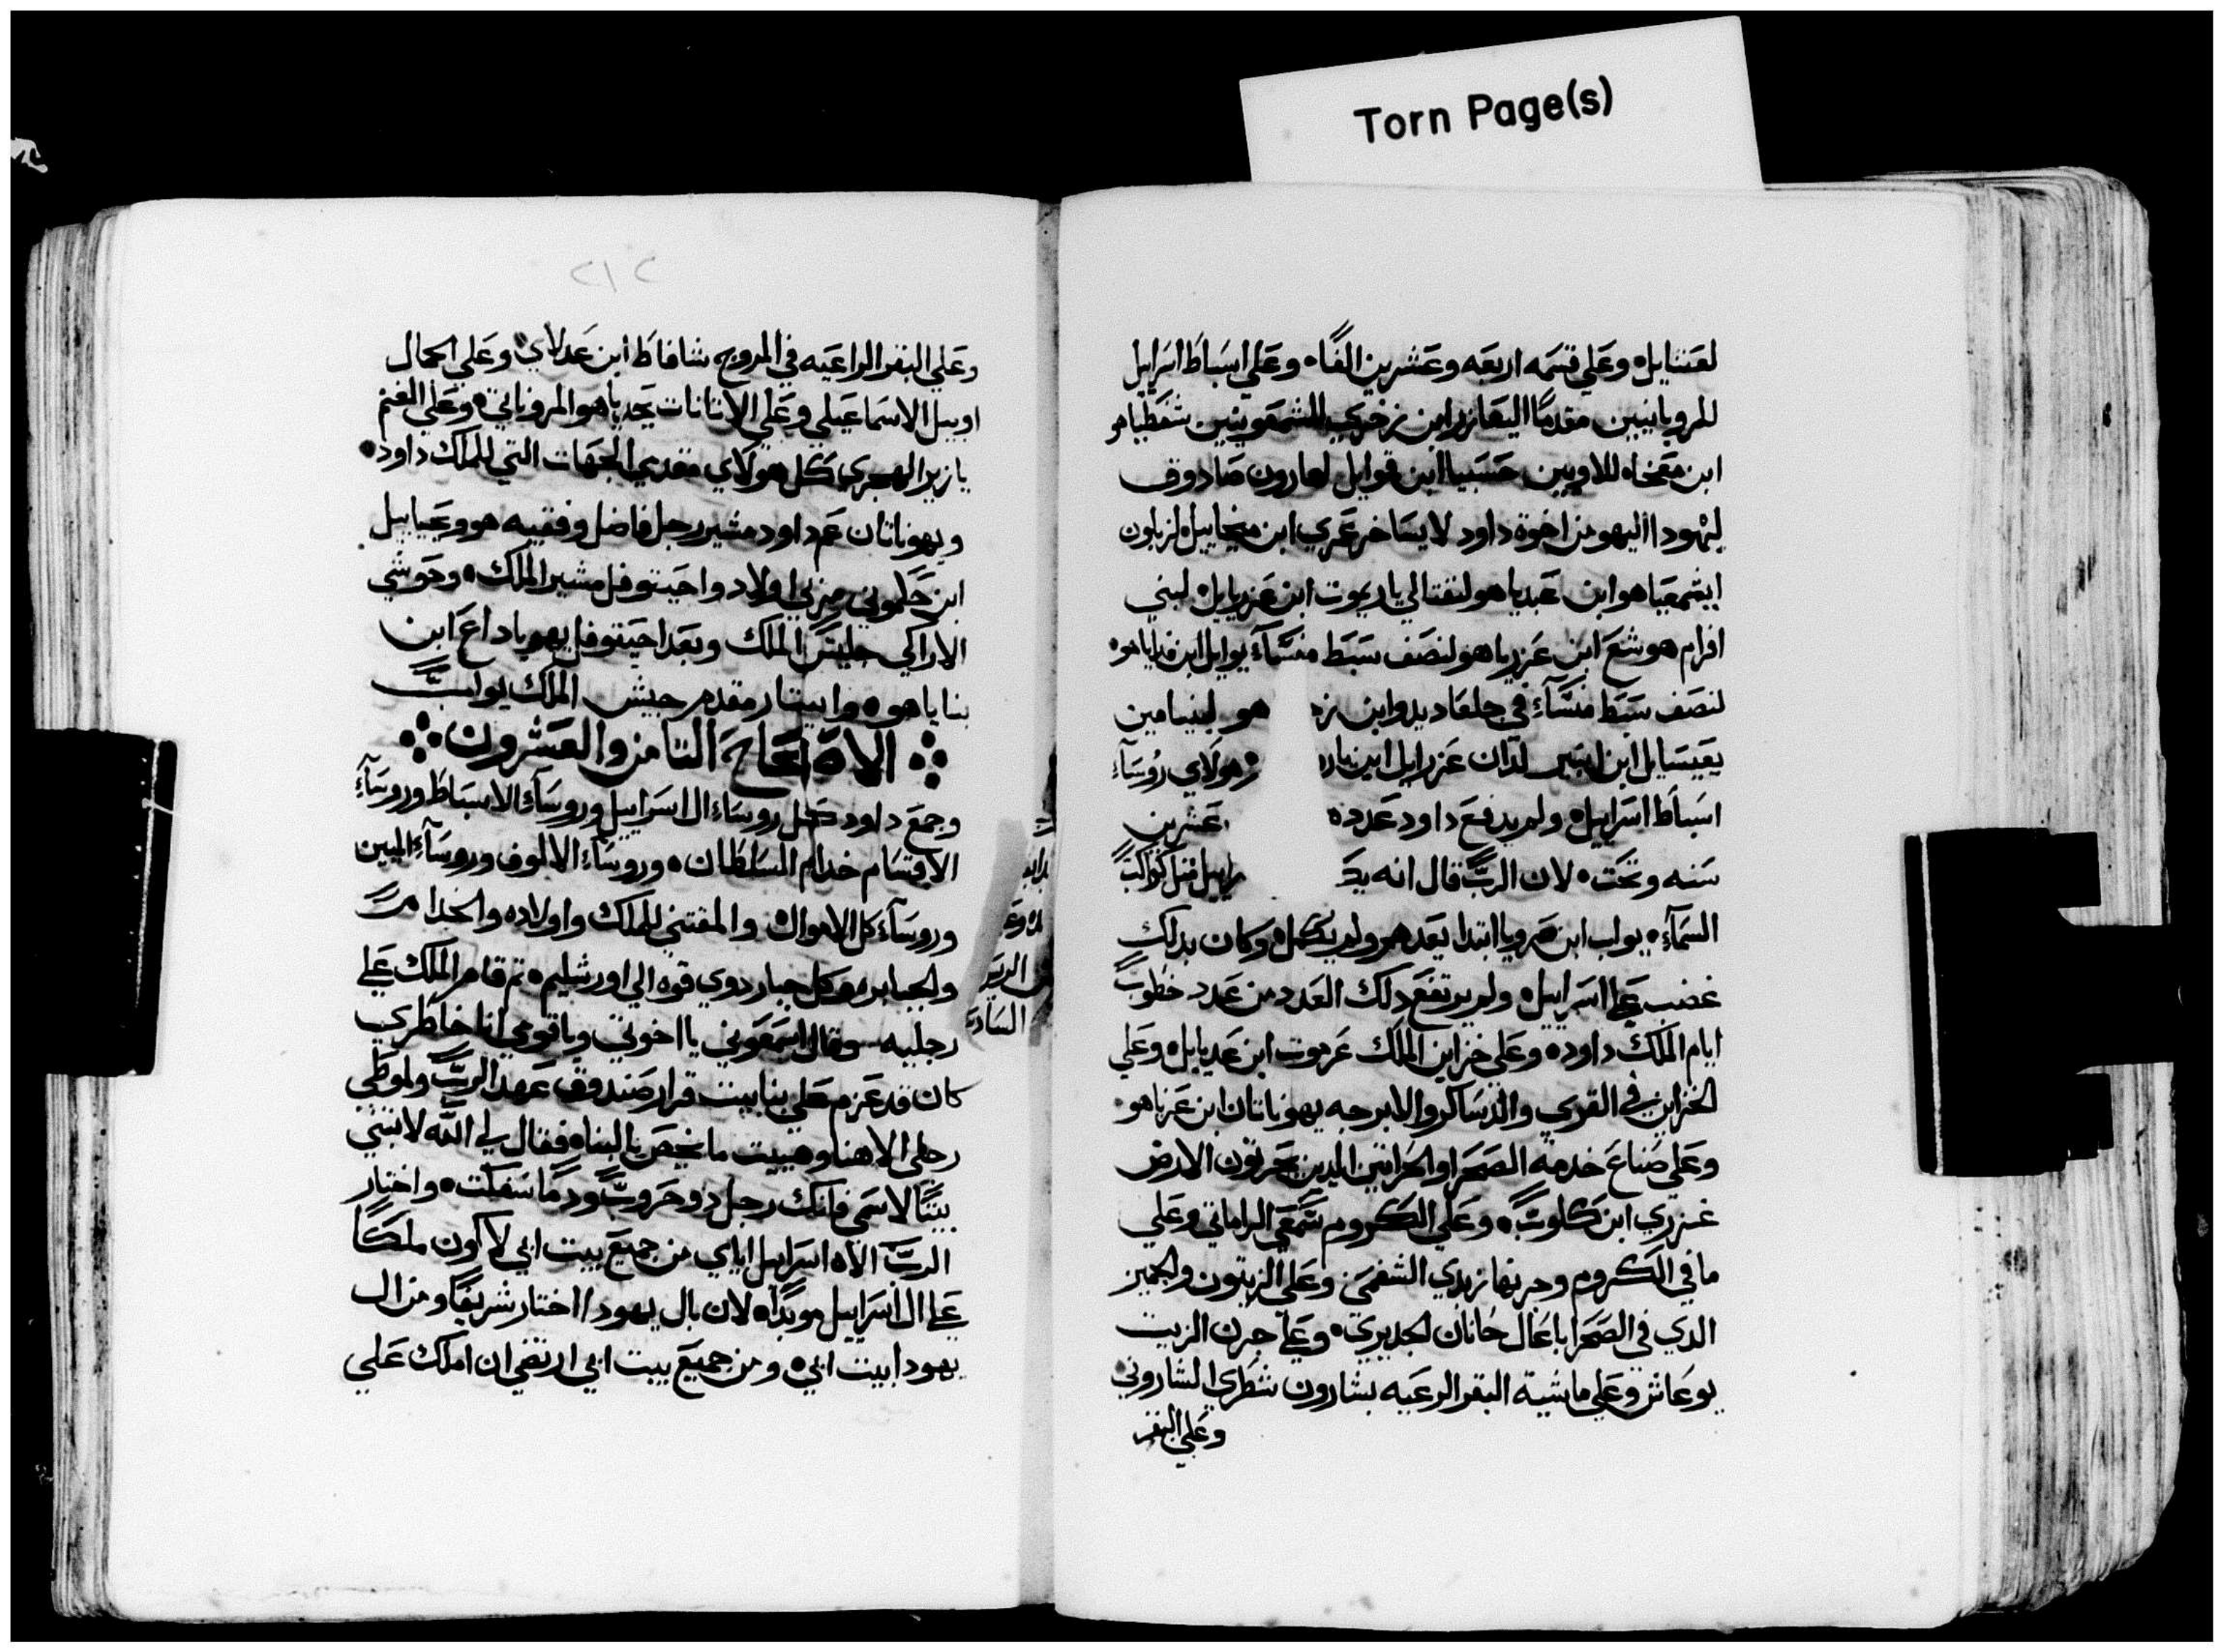 Torn Page(s)
لعتنايل وعلي قسمه اربعه وعشرين الفًا وعلي اسباط اسرايل
للروبانيين مقدمًا اليعازر ابن زخري للشمعونيين شفطياهو
ابن معخاه للاويين حسبيا ابن قوايل لهارون صادوق
ليهودا اليهو من اخوة داود لايساخر عمري ابن ميخاييل لزبلون
ايشمعياهو ابن عبدياهو لنفتالي ياريموت ابن عزريايل لبني
افرام هوشع ابن عزرياهو لنصف سبط منسآء يوايل ابن فداياهو
لنصف سبط منسآء في جلعاد يدو ابن ز هو لبنيامين
يعيسايل ابن ابنير لدان عزرايل ابن يار هولاي روسآء
اسباط اسرايل ولم يدفع داود عدده عشرين
سنه وتحت لان الربّ قال انه يك راييل مثل كواكب
السمآء يواب ابن صرويا ابتدا يعدهم ولم يكمل وكان بدلك
غضب علي اسراييل ولم يرتفع دلك العدد من عدد خطوب
ايام الملك داود وعلي خزاين الملك عزموت ابن عديايل وعلي
الخزاين في القري والدساكر والابرجه يهوناتان ابن عزياهو
وعلي صناع خدمه الصحرا والحراتين الدين يحرتون الارض
عزري ابن كلوب وعلي الكروم شمعي الراماتي وعلي
ما في الكروم وحرنها زبدي الشفمي وعلي الزيتون والجميز
الدي في الصحرا باعال حانان الجديري وعلي جرن الزيت
يوعاش وعلي ماشية البقر الرعيه بشارون شطري الشاروني
وعلي البقر
٢١٢
وعلي البقر الراعيه في المروج شافاط ابن عدلاي وعلي الجمال
اوبيل الاسماعيلي وعلي الاتانات يحدياهو المروناتي وعلي الغنم
يازيز الهجري كل هولاي مقدمي الجهات التي للملك داود
ويهوناتان عم داود مشير رجل فاضل وفقيه هو وعيابيل
ابن حلموني مربي اولاد واحيتوفل مشير الملك وحوشي
الاراكي جليس الملك وبعد احيتوفل يهوياداع ابن
بناياهو وابيتار مقدم جيش الملك يواب
الاصحاح التامن والعشرون
وجمع داود كل روساء ال اسراييل وروسآء الاسباط وروسآء
الاقسام خدام السلطان وروسآء الالوف وروسآء الميين
وروسآء كل الاموال والمقتني للملك واولاده والخدام
والجبابره وكل جبار دوي قوه الي اورشليم تم قام الملك علي
رجليه وقال اسمعوني يا اخوتي ويا قومي انا خاطري
كان قد عزم علي بنا بيت قرار صندوق عهد الربّ ولموطي
رجلي الاهنا وهييت ما يخص بالبناه فقال لي اللّه لا تبني
بيتًا لاسمي فانك رجل دو حروب ودمًا سفكت واختار
الربّ الاه اسرايل اياي من جميع بيت ابي لاكون ملكًا
علي ال اسراييل موبدًا لان بال يهودا اختار شريفًا ومن ال
يهودا بيت ابي ومن جميع بيت ابي ارتضي ان املك علي